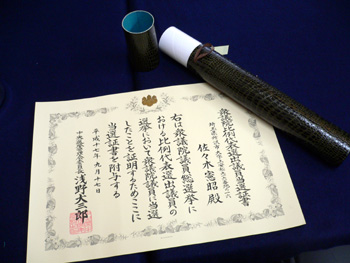 衆議院比例代表選出議員当選証書
佐々木憲昭 殿
右は衆議院議員総選挙に
おける比例代表選出議員の
選挙において衆議院議員に当選
したことを証明するためここに
当選証書を附与する
平成十七年九月十七日
浅野大三郎